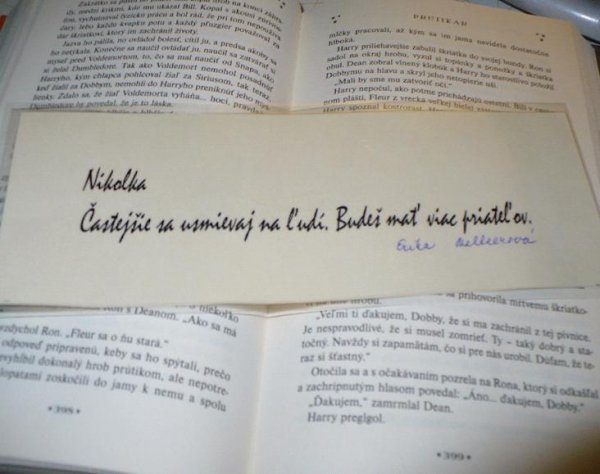 PRUTIKÁR
ťary, lebo každú krupku potu a každý pľuzgier považoval za
dar škriatkovi, ktorý im zachránil život.
Jazva ho pálila, no ovládal bolesť, cítil ju, a predsa akoby sa
ho netýkala. Konečne sa naučil ovládať ju, naučil sa zatvárať si
myseľ pred Voldemortom, to, čo sa mal naučiť od Snapa, ako
si želal Dumbledore. Tak ako Voldemort nemohol posadnúť
Harryho, kým chlapca pohlcoval žiaľ za Siriusom, tak teraz,
keď žialil za Dobbym, nemohli do Harryho preniknúť jeho myš-
lienky. Zdalo sa, že žiaľ Voldemorta vyháňa... hoci, pravda,
Dumbledore by povedal, že je to láska.
mlčky pracovali, až kým sa im jama nevidela dostatočne
hlboká.
Harry priliehavejšie zabalil škriatka do svojej bundy. Ron si
sadol na okraj hrobu, vyzul si topánky a ponožky a škriatka
obul. Dean zobral vlnený klobúk a Harry ho starostlivo položil
Dobbymu na hlavu a skryl jeho netopierie uši.
„Mali by sme mu zatvoriť oči.“
Harry nepočul, ako potme prichádzajú ostatní. Bill v cestov-
nom plášti, Fleur z vrecka veľkej bielej zástery
Nikolka
Častejšie sa usmievaj na ľudí. Budeš mať viac priateľov.
Erika
s Deanom. „Ako sa má
vzdychol Ron. „Fleur sa o ňu stará.“
odpoveď pripravenú, keby sa ho spýtali, prečo
vyhĺbil dokonalý hrob prútikom, ale nepotre-
lopatami zoskočili do jamy k nemu a spolu
398
sa prihovorila mŕtvemu škriatko-
„Veľmi ti ďakujem, Dobby, že si ma zachránil z tej pivnice.
Je nespravodlivé, že si musel zomrieť. Ty – taký dobrý a sta-
točný. Navždy si zapamätám, čo si pre nás urobil. Dúfam, že te-
raz si šťastný.“
Otočila sa a s očakávaním pozrela na Rona, ktorý si odkašľal
a zachripnutým hlasom povedal: „Áno... ďakujem, Dobby.“
„Ďakujem,“ zamrmlal Dean.
Harry preglgol.
399